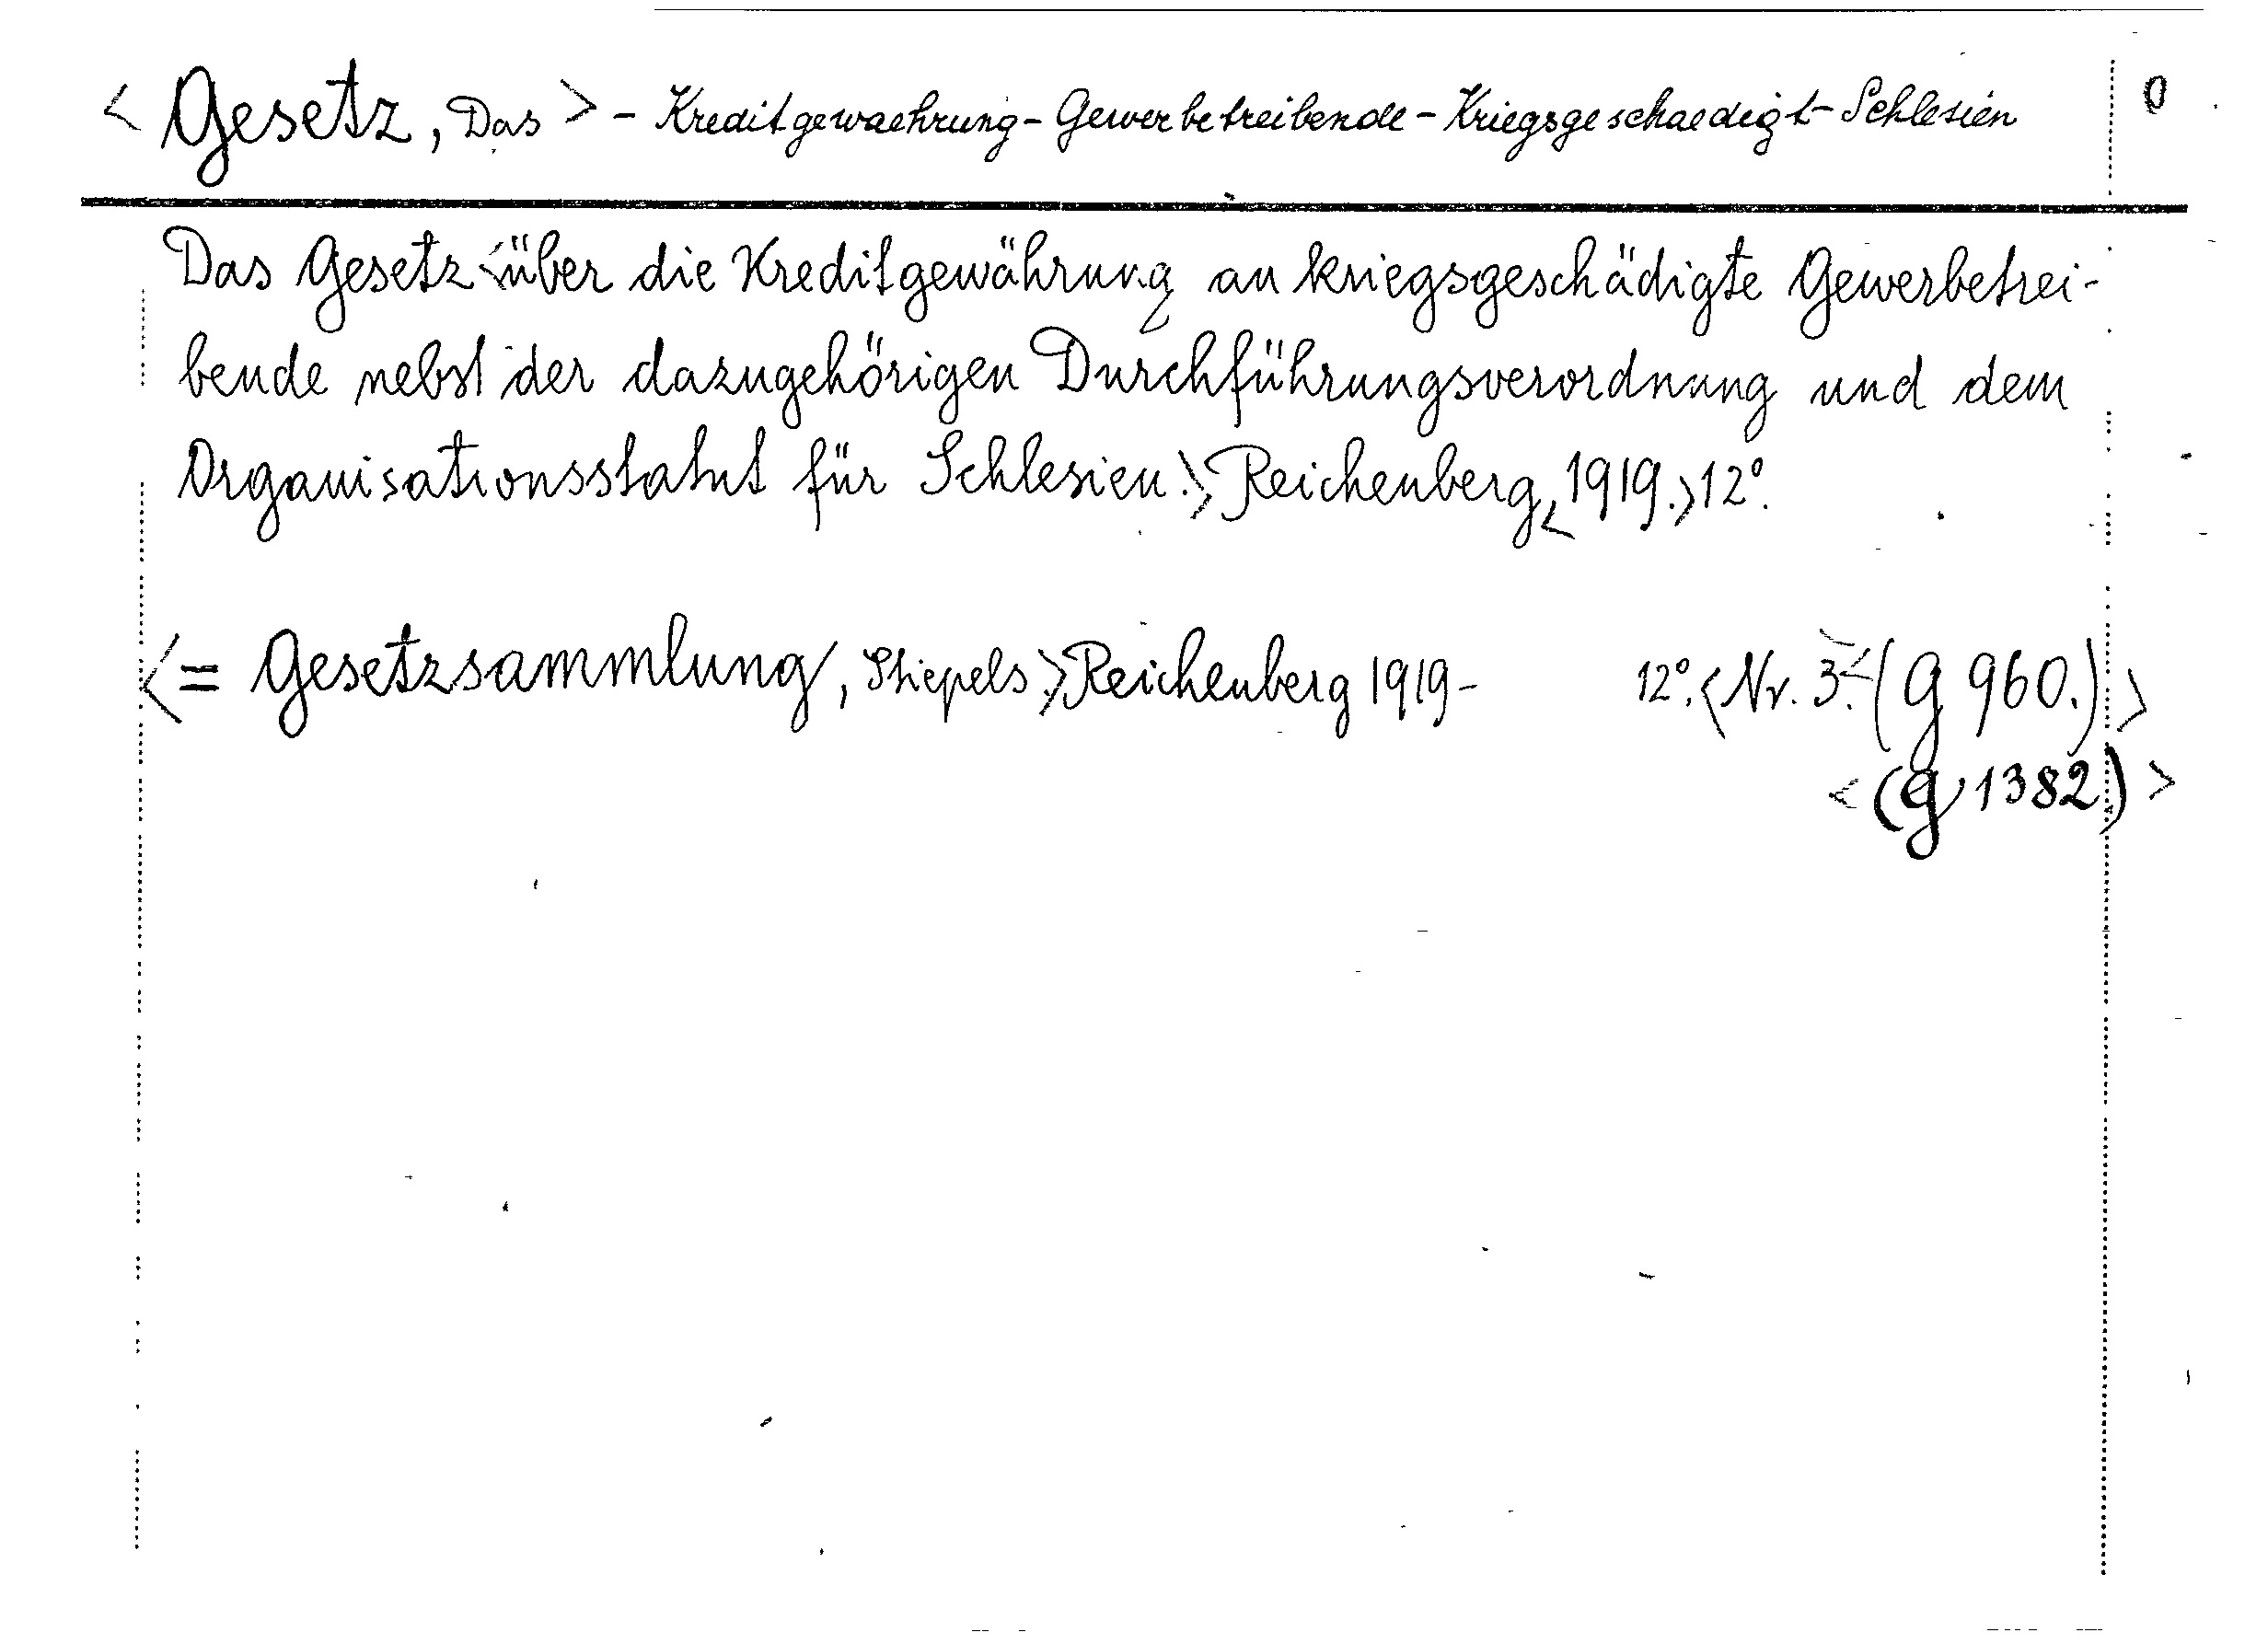 < Gesetz, Das > - Kreditgewaehrung - Gewerbetreibende - Kriegsgeschaedigt - Schlesien 0
Das Gesetz <über die Kreditgewährung an kriegsgeschädigte Gewerbetrei-
bende nebst der dazugehörigen Durchführungsverordnung und dem
Organisationsstatut für Schlesien.> Reichenberg <1919.> 12°.
<= Gesetzsammlung, Stiepels.> Reichenberg 1919- 12°. <Nr. 3.< (G 960.) >
< (G 1382) >